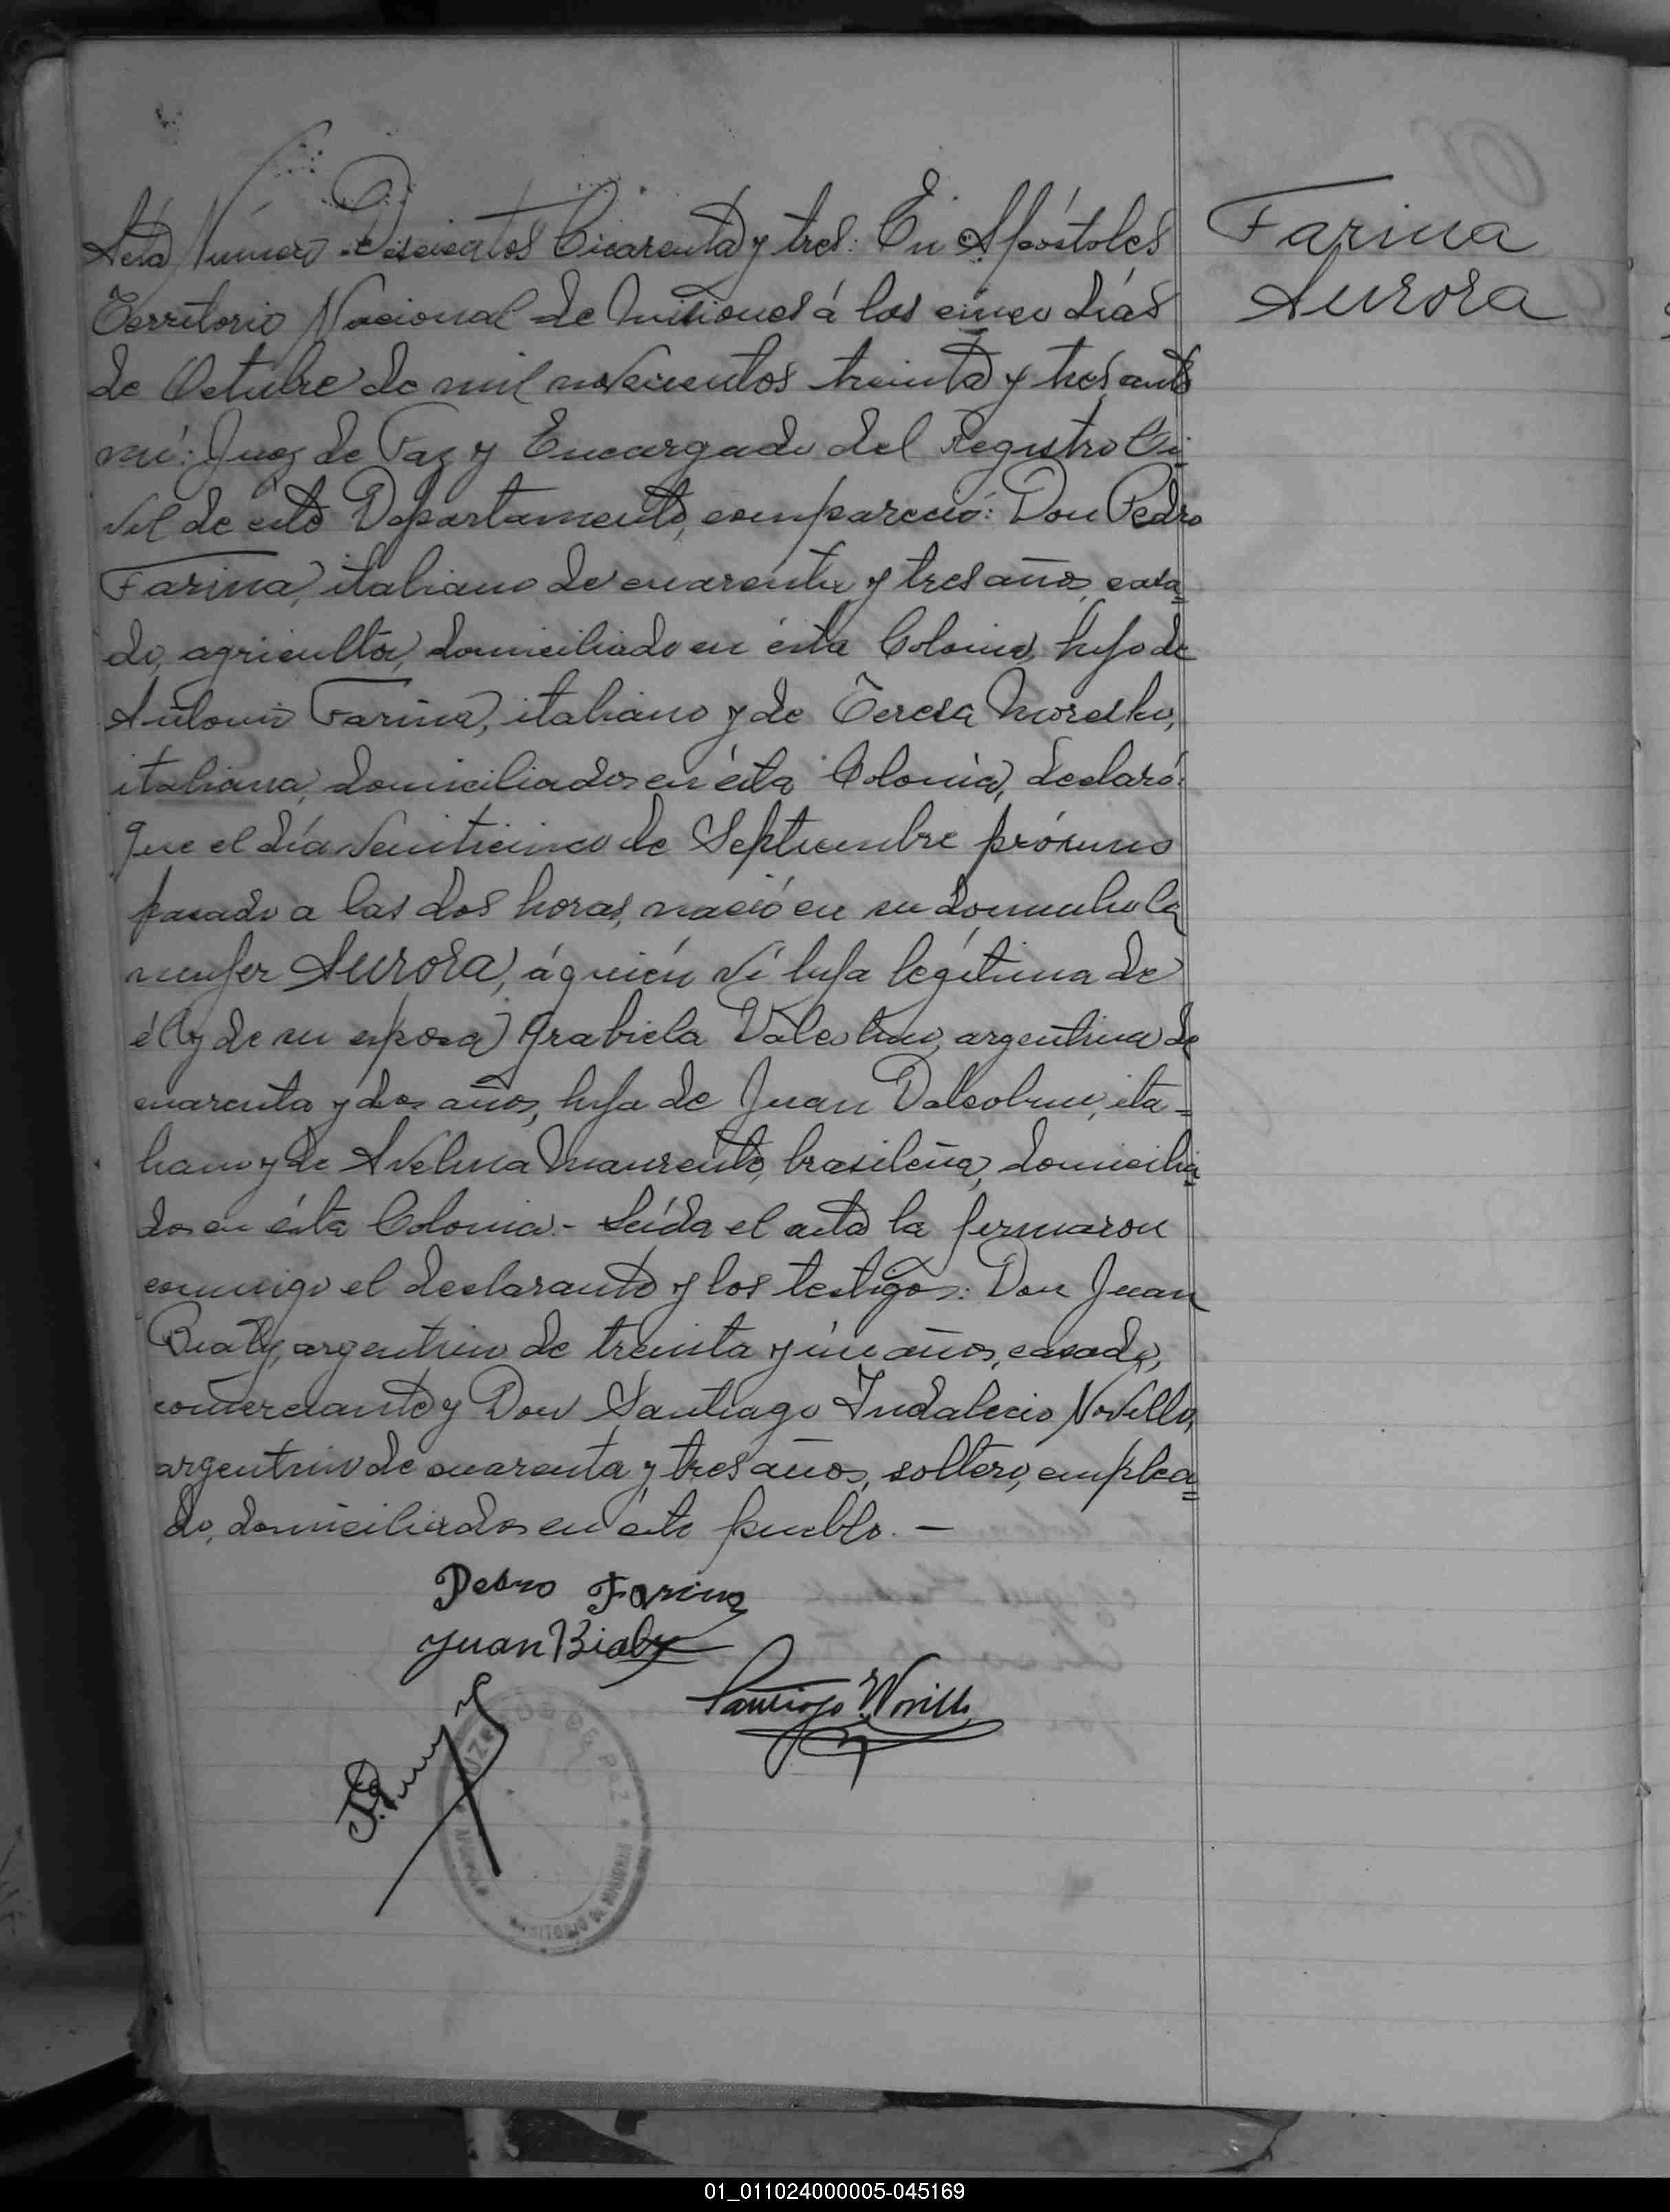 Acta Número Doscientos Cuarenta y tres: En Apóstoles
Territorio Nacional de Misiones á los cinco días
de Octubre de mil novecientos treinta y tres, ante
mí: Juez de Paz y Encargado del Registro Ci
vil de éste Departamento, compareció: Don Pedro
Farina, italiano de cuarenta y tres años, casa=
do, agricultor, domiciliado en ésta Colonia, hijo de
Antonio Farina, italiano y de Teresa
italiana, domiciliados en ésta Colonia, declaró:
Que el día veinticinco de Septiembre próximo
pasado a las dos horas, nació en su domicilio la
mujer Aurora, á quién ví hija legítima de
él y de su esposa Grabiela argentina de
cuarenta y dos años, hija de Juan ita-
liano y de Avelina brasileña, domicilia
dos en ésta Colonia.- Leída el acta la firmaron
conmigo el declarante y los testigos: Don Juan
Bialy, argentino de treinta y un años, casado,
comerciante y Don Santiago Indalecio Novillo,
argentino de cuarenta y tres años, soltero, emplea=
do, domiciliados en éste pueblo. —
Farina
Aurora
Pedro Farina
Juan Bialy
Santiago Y. Novillo
JUZGADO DE PAZ
TERRITORIO DE MISIONES
01_011024000005-045169